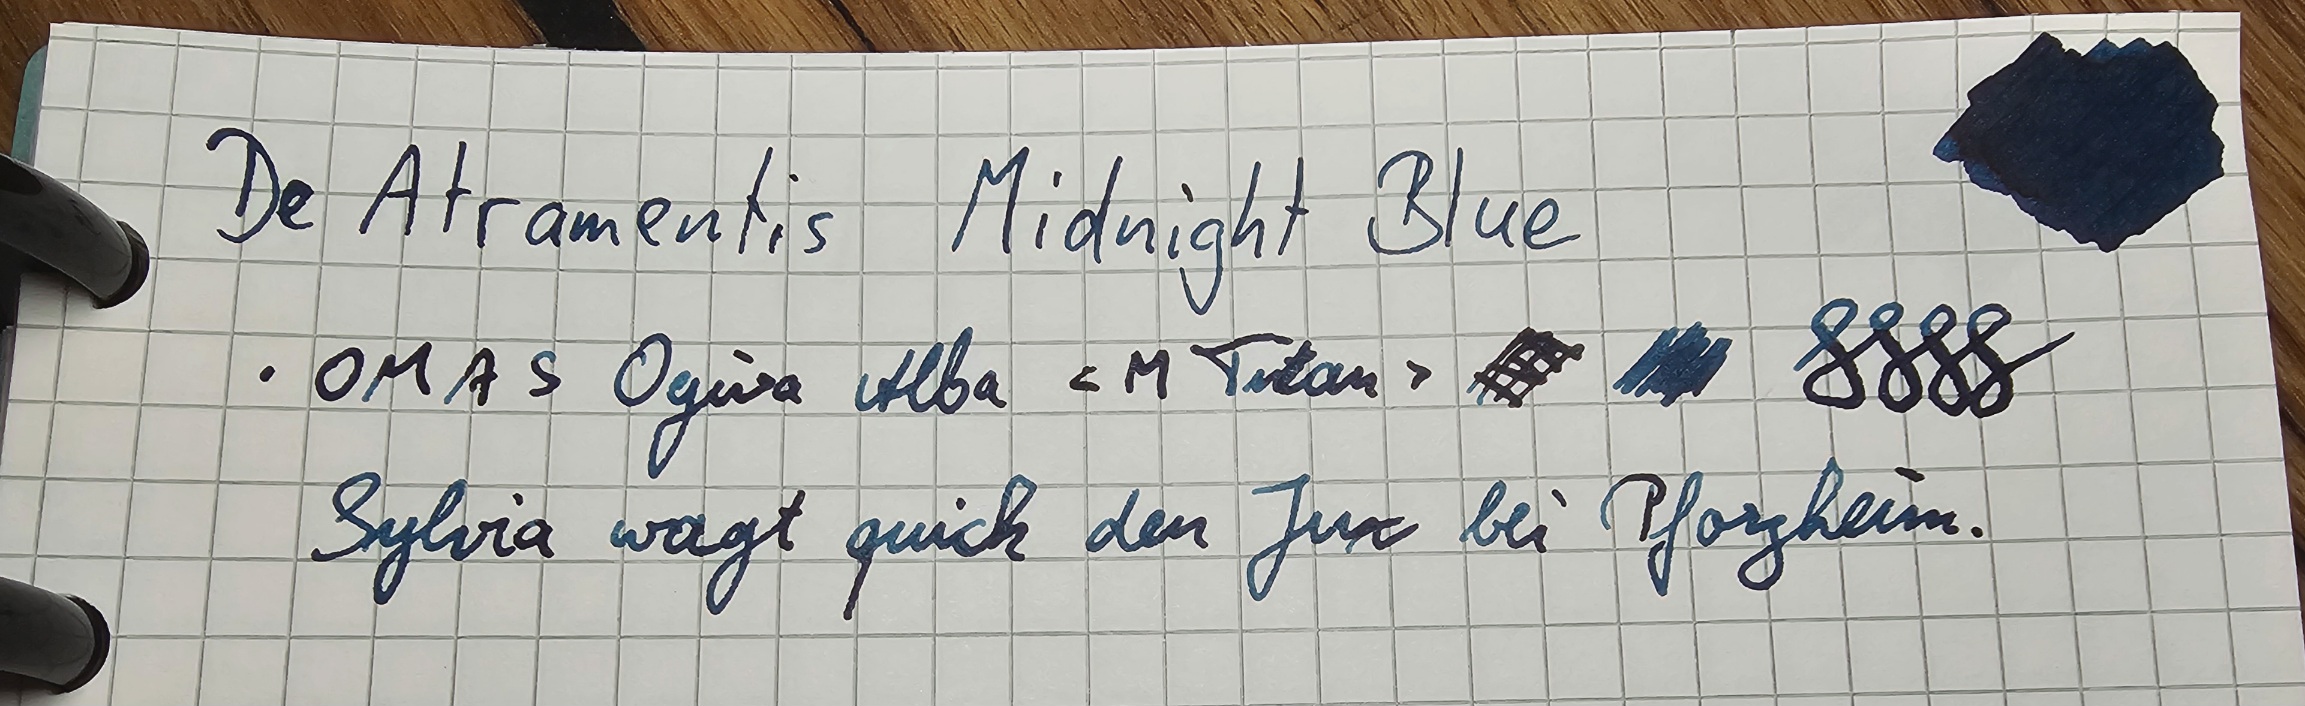 De Atramentis Midnight Blue
· OMAS Ogiva Alba <M Titan>
Sylvia wagt quick den Jux bei Pforzheim.